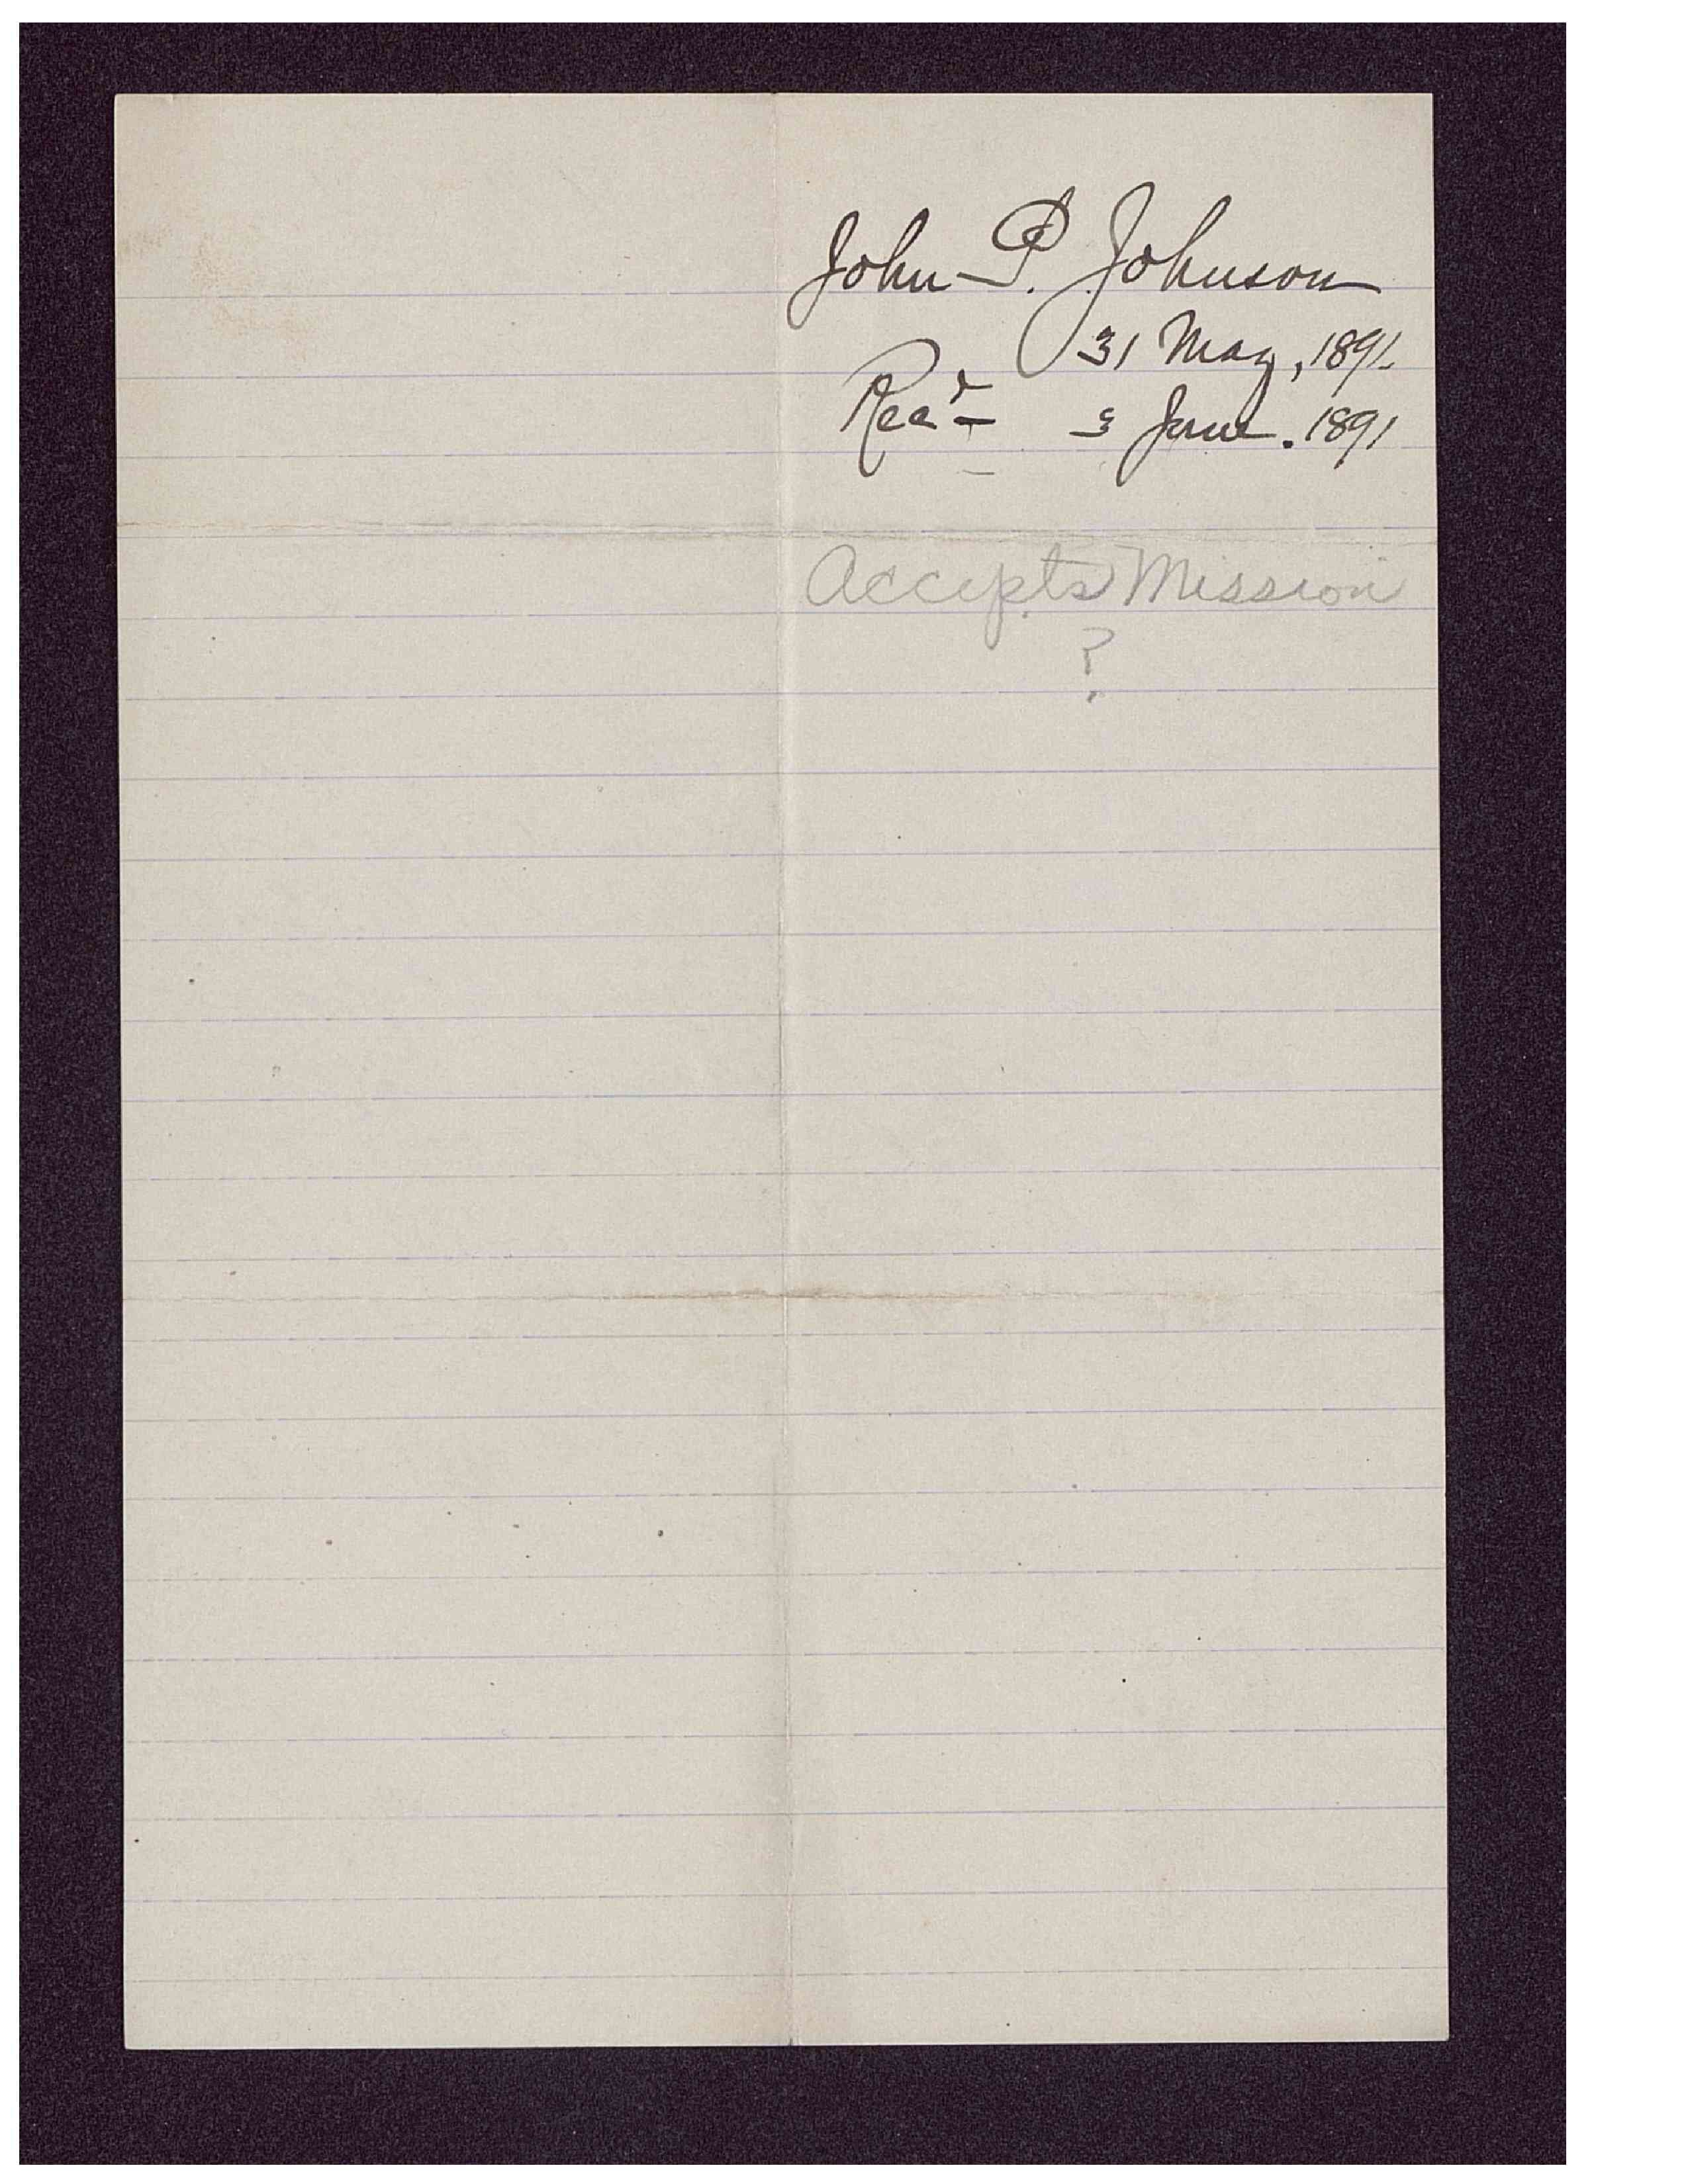 John P. Johnson
31 May, 1891.
Recd 3 June. 1891
Accepts Mission
?